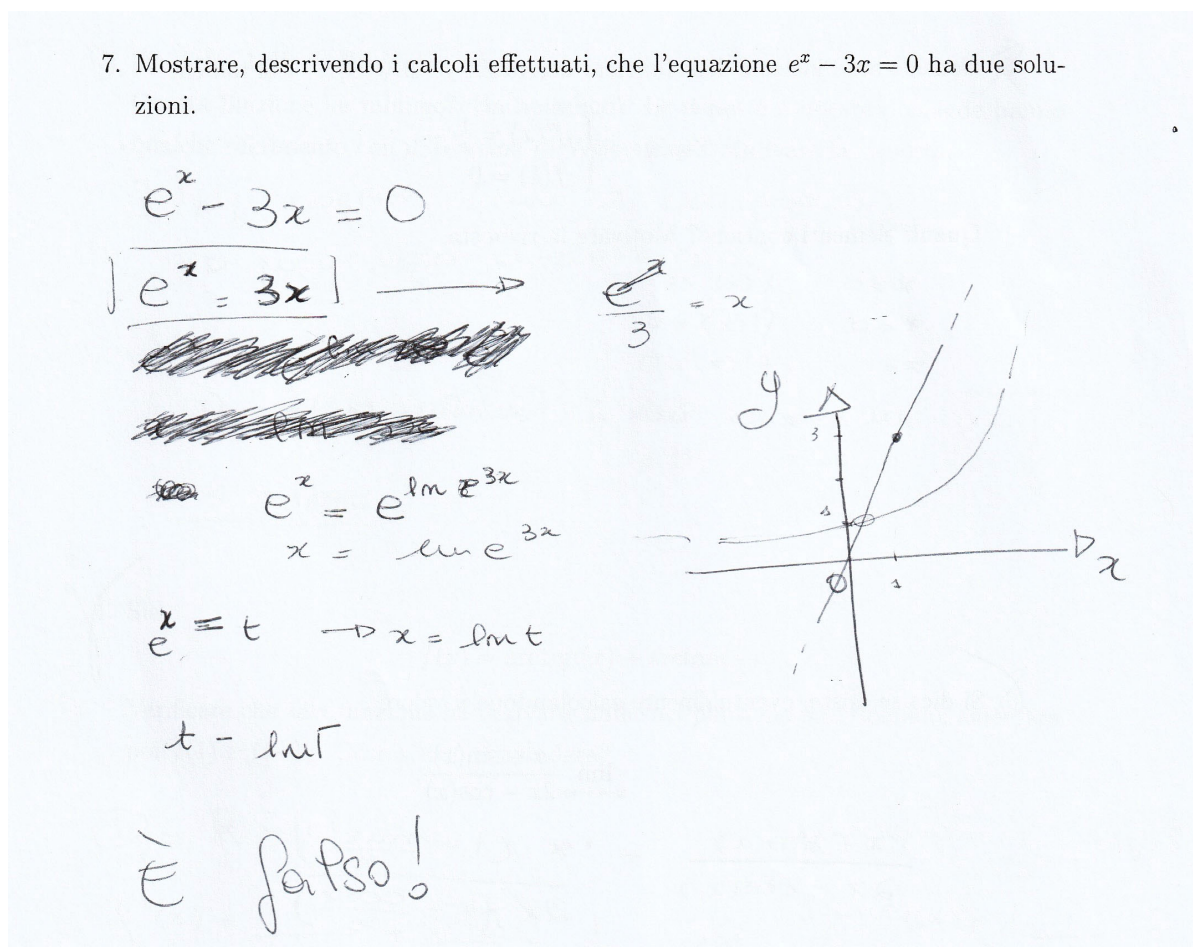 7. Mostrare, descrivendo i calcoli effettuati, che l'equazione eˣ − 3x = 0 ha due solu-
zioni.
eˣ - 3x = 0
eˣ = 3x → eˣ/3 = x
y
3
1
0
1
x
eˣ = e^ln e^3x
x = ln e^3x
eˣ = t → x = ln t
t - ln t
È falso!